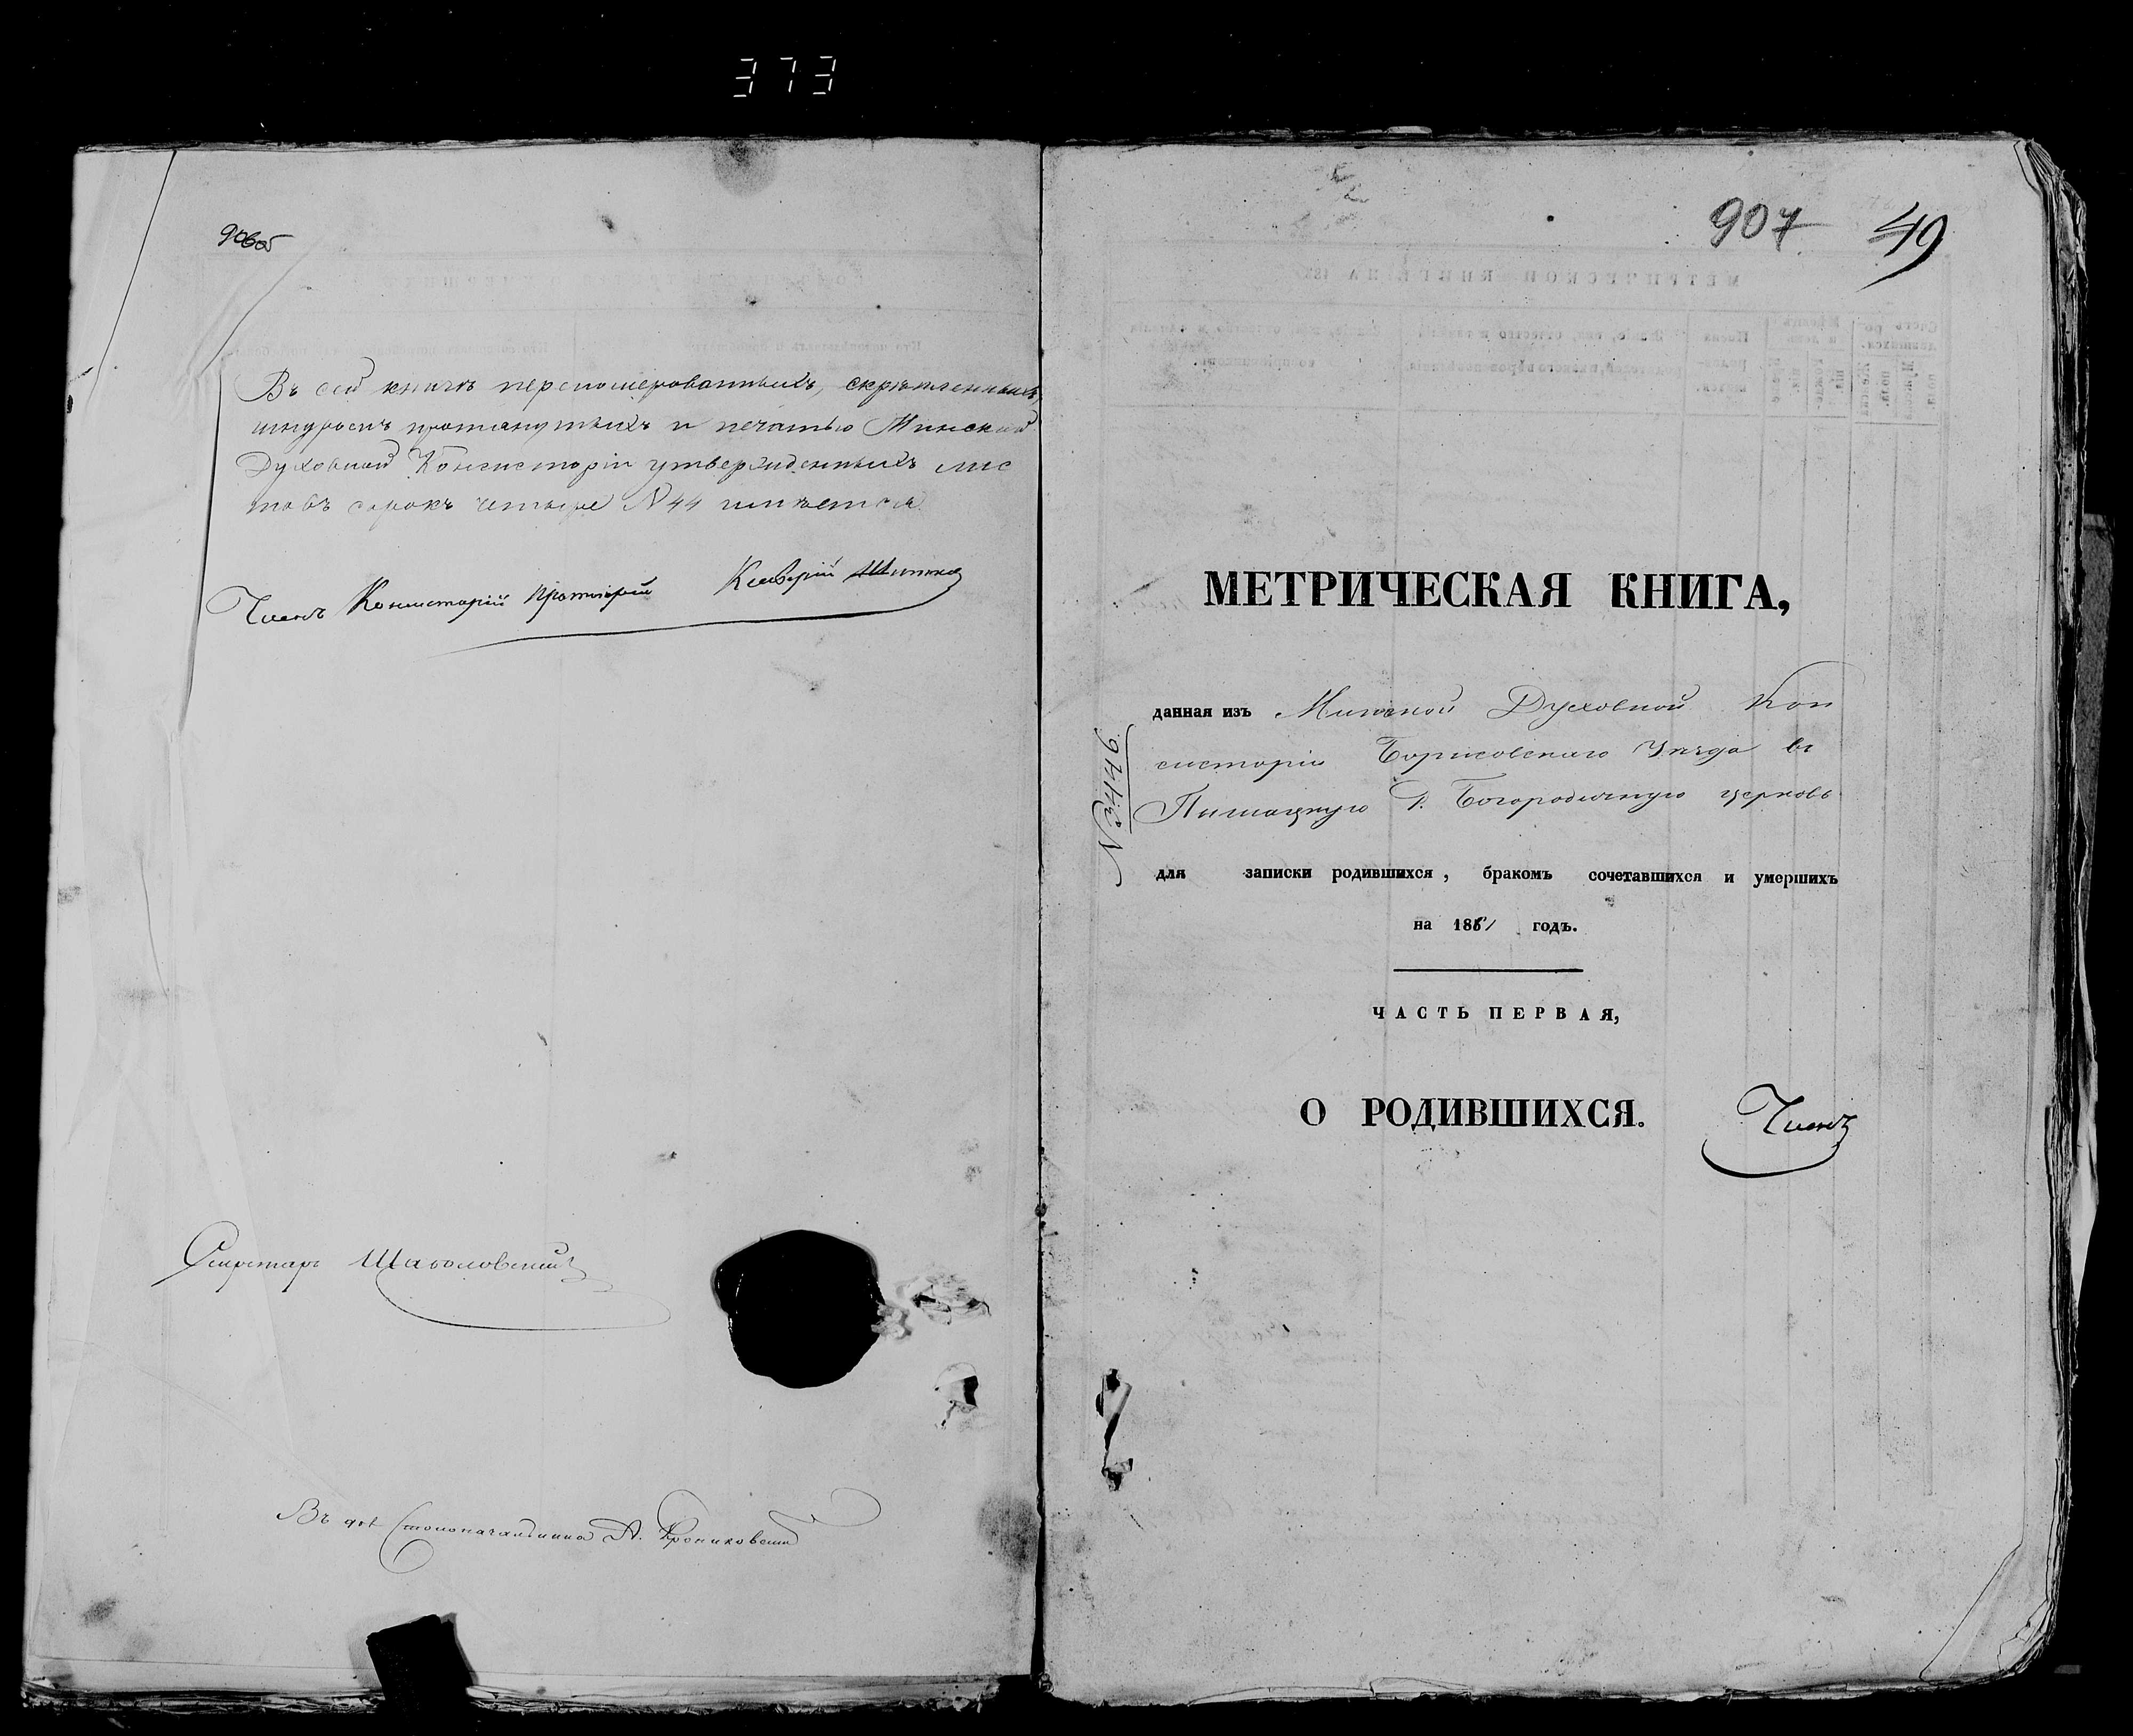 373
906об
Въ сей книгѣ перепомерованныхъ, скрѣпленныхъ,
шнуромъ протянутыхъ и печатью Минской
Духовной Консисторіи утвержденныхъ лис
товъ сорокъ четыре N 44 имѣется.
Членъ Консисторіи Протоіерей
Секретарь
Въ дол Столоначальника А.
907 49
МЕТРИЧЕСКАЯ КНИГА,
данная изъ Минской Духовной Кон
систоріи Борисовскаго Уѣзда въ
Пышацкую Р. Богородичную церковь
для записки родившихся, бракомъ сочетавшихся и умершихъ
на 1861 годъ.
ЧАСТЬ ПЕРВАЯ,
О РОДИВШИХСЯ.
Членъ